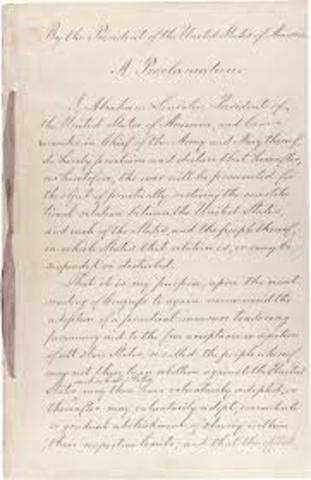 By the President of the United States of America
A Proclamation.
I, Abraham Lincoln, President of
the United States of America, and Com-
mander in Chief of the Army and Navy thereof,
do hereby proclaim and declare that hereafter,
as heretofore, the war will be prosecuted for
the object of practically restoring the constitu-
tional relation between the United States,
and each of the States, and the people thereof,
in which States that relation is, or may be
suspended or disturbed.
That it is my purpose, upon the next
meeting of Congress to again recommend the
adoption of a practical measure tendering
pecuniary aid to the free acceptance or rejection
of all slave States, so called, the people whereof
may not then be in rebellion against the United
States and which States may then have voluntarily adopted, or
thereafter may voluntarily adopt, immediate
or gradual abolishment of slavery within
their respective limits; and that the effort